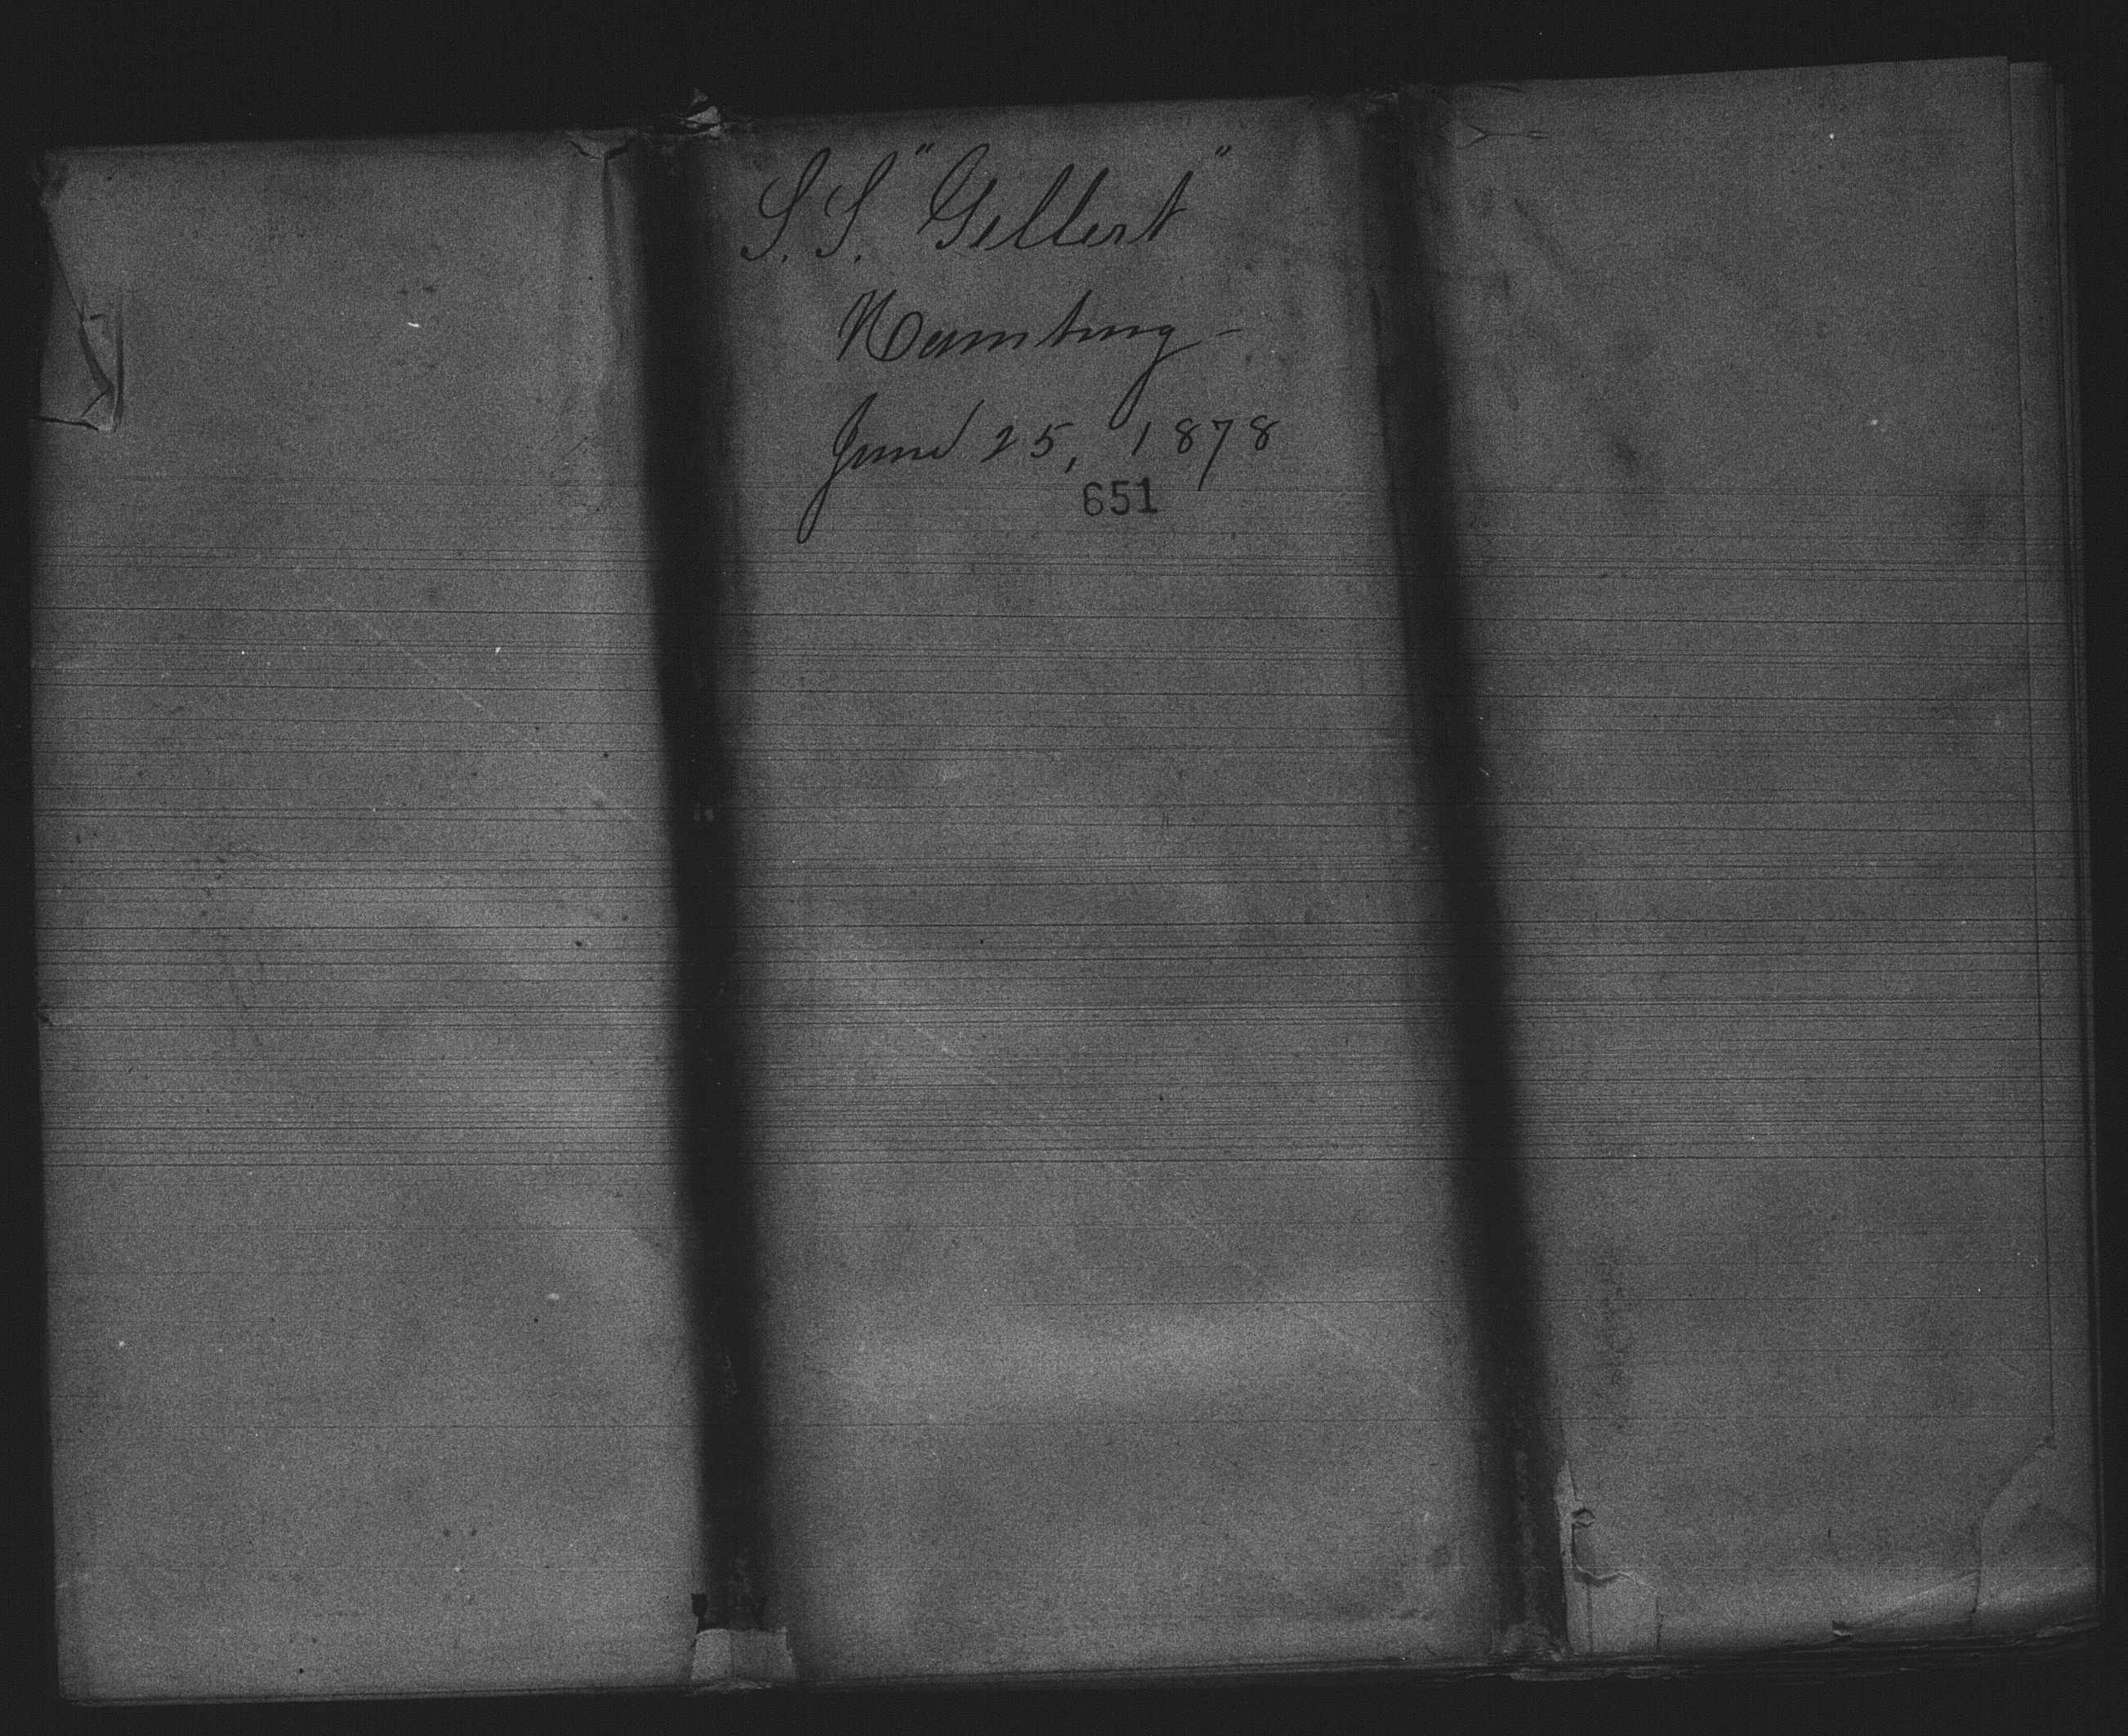 S.S. "Gellert"
Hamburg -
June 25, 1878
651